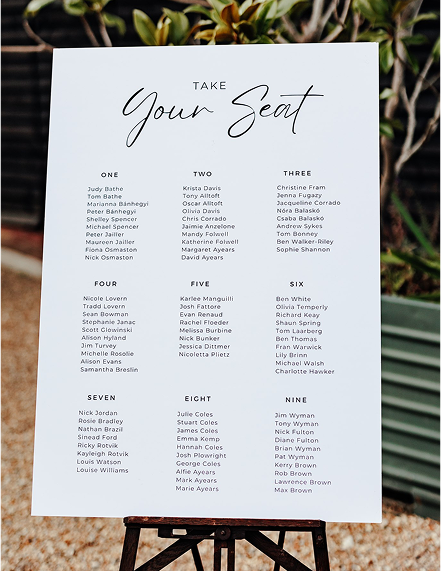 TAKE
Your Seat
ONE
Judy Bathe
Tom Bathe
Marianna Bánhegyi
Peter Bánhegyi
Shelley Spencer
Michael Spencer
Peter Jailler
Maureen Jailler
Fiona Osmaston
Nick Osmaston
TWO
Krista Davis
Tony Alltoft
Oscar Alltoft
Olivia Davis
Chris Corrado
Jaimie Anzelone
Mandy Folwell
Katherine Folwell
Margaret Ayears
David Ayears
THREE
Christine Fram
Jenna Fugazy
Jacqueline Corrado
Nóra Balaskó
Csaba Balaskó
Andrew Sykes
Tom Bonney
Ben Walker-Riley
Sophie Shannon
FOUR
Nicole Lovern
Tradd Lovern
Sean Bowman
Stephanie Janac
Scott Glowinski
Alison Hyland
Jim Turvey
Michelle Rosolie
Alison Evans
Samantha Breslin
FIVE
Karlee Manguilli
Josh Fattore
Evan Renaud
Rachel Floeder
Melissa Burbine
Nick Bunker
Jessica Dittmer
Nicoletta Plietz
SIX
Ben White
Olivia Temperly
Richard Keay
Shaun Spring
Tom Laarberg
Ben Thomas
Fran Warwick
Lily Brinn
Michael Walsh
Charlotte Hawker
SEVEN
Nick Jordan
Rosie Bradley
Nathan Brazil
Sinead Ford
Ricky Rotvik
Kayleigh Rotvik
Louis Watson
Louise Williams
EIGHT
Julie Coles
Stuart Coles
James Coles
Emma Kemp
Hannah Coles
Josh Plowright
George Coles
Alfie Ayears
Mark Ayears
Marie Ayears
NINE
Jim Wyman
Tony Wyman
Nick Fulton
Diane Fulton
Brian Wyman
Pat Wyman
Kerry Brown
Rob Brown
Lawrence Brown
Max Brown